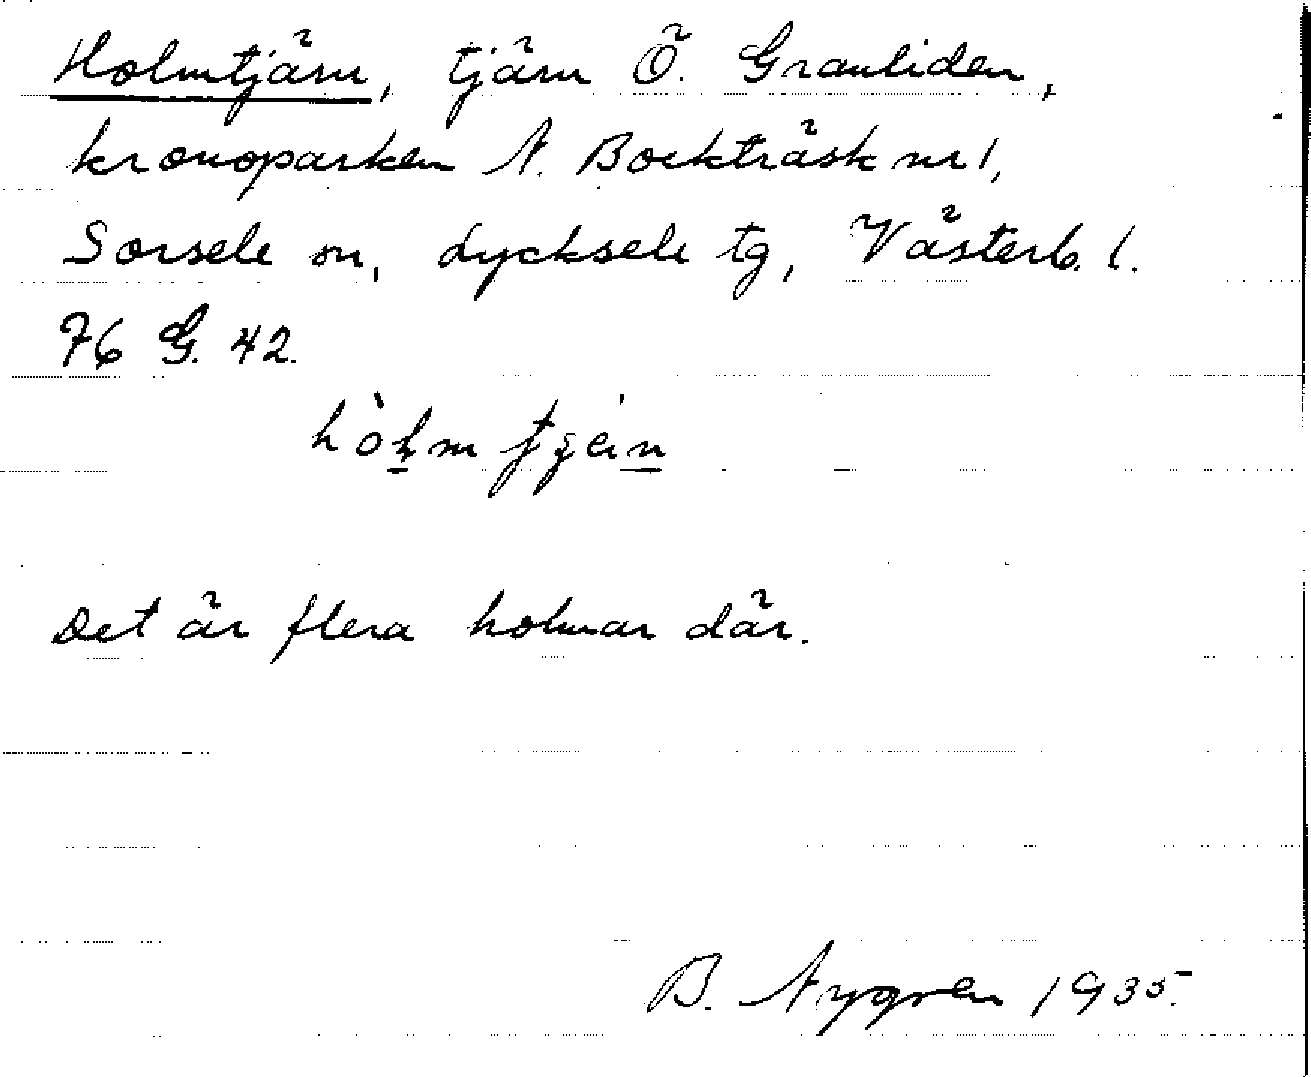 Holmtjärn, tjärn Ö. Granliden,
kronoparken N. Bockträsk nr 1,
Sorsele sn, Lycksele tg, Västerb. l.
76 G. 42.
Det är flera holmar där.
B. Nygren 1935.